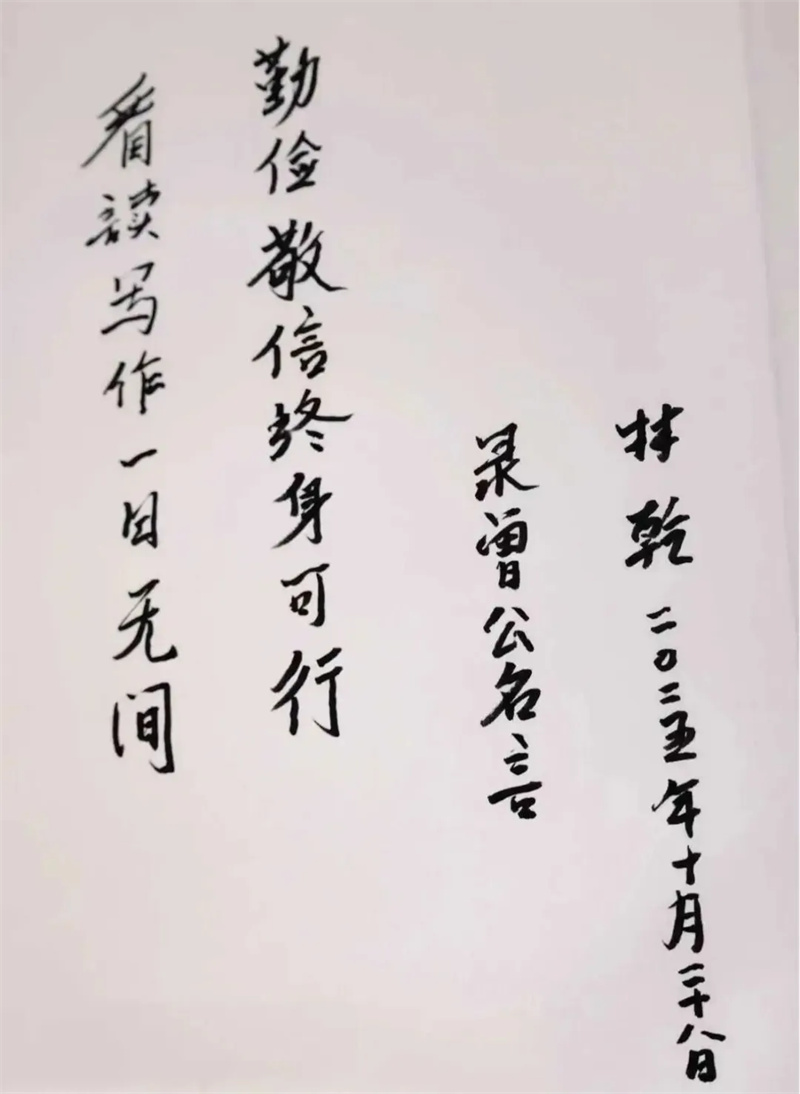 看读写作一日无间
勤俭敬信终身可行
录曾公名言
林乾二〇二五年十月二十八日